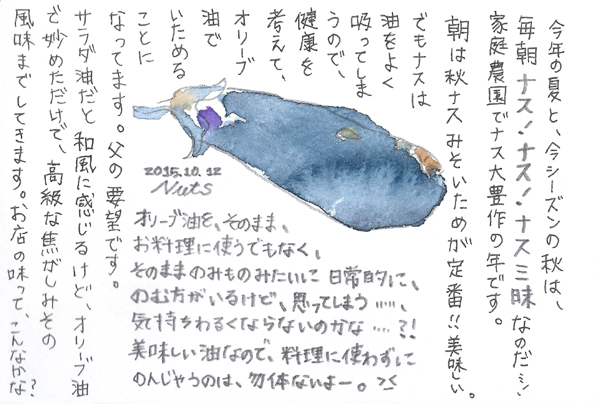 今年の夏と、今シーズンの秋は、
毎朝ナス！ナス！ナス三昧なのだ…
家庭農園でナス大豊作の年です。
朝は秋ナスみそいためが定番!!美味しい。
でもナスは
油をよく
吸ってしま
うので、
健康を
考えて、
オリーブ
油で
いためる
ことに
なってます。父の要望です。
サラダ油だと和風に感じるけど、オリーブ油
で妙めただけで、高級な焦がしみその
風味までしてきます。お店の味って、こんなかな？
2015.10.12
Nuts
オリーブ油を、そのまま、
お料理に使うでもなく、
そのままのみものみたいに日常的に、
のむ方がいるけど、思ってしまう……、
気持ちわるくならないのかな…?!
美味しい油なので、料理に使わずして
のんじゃうのは、勿体ないよー。><